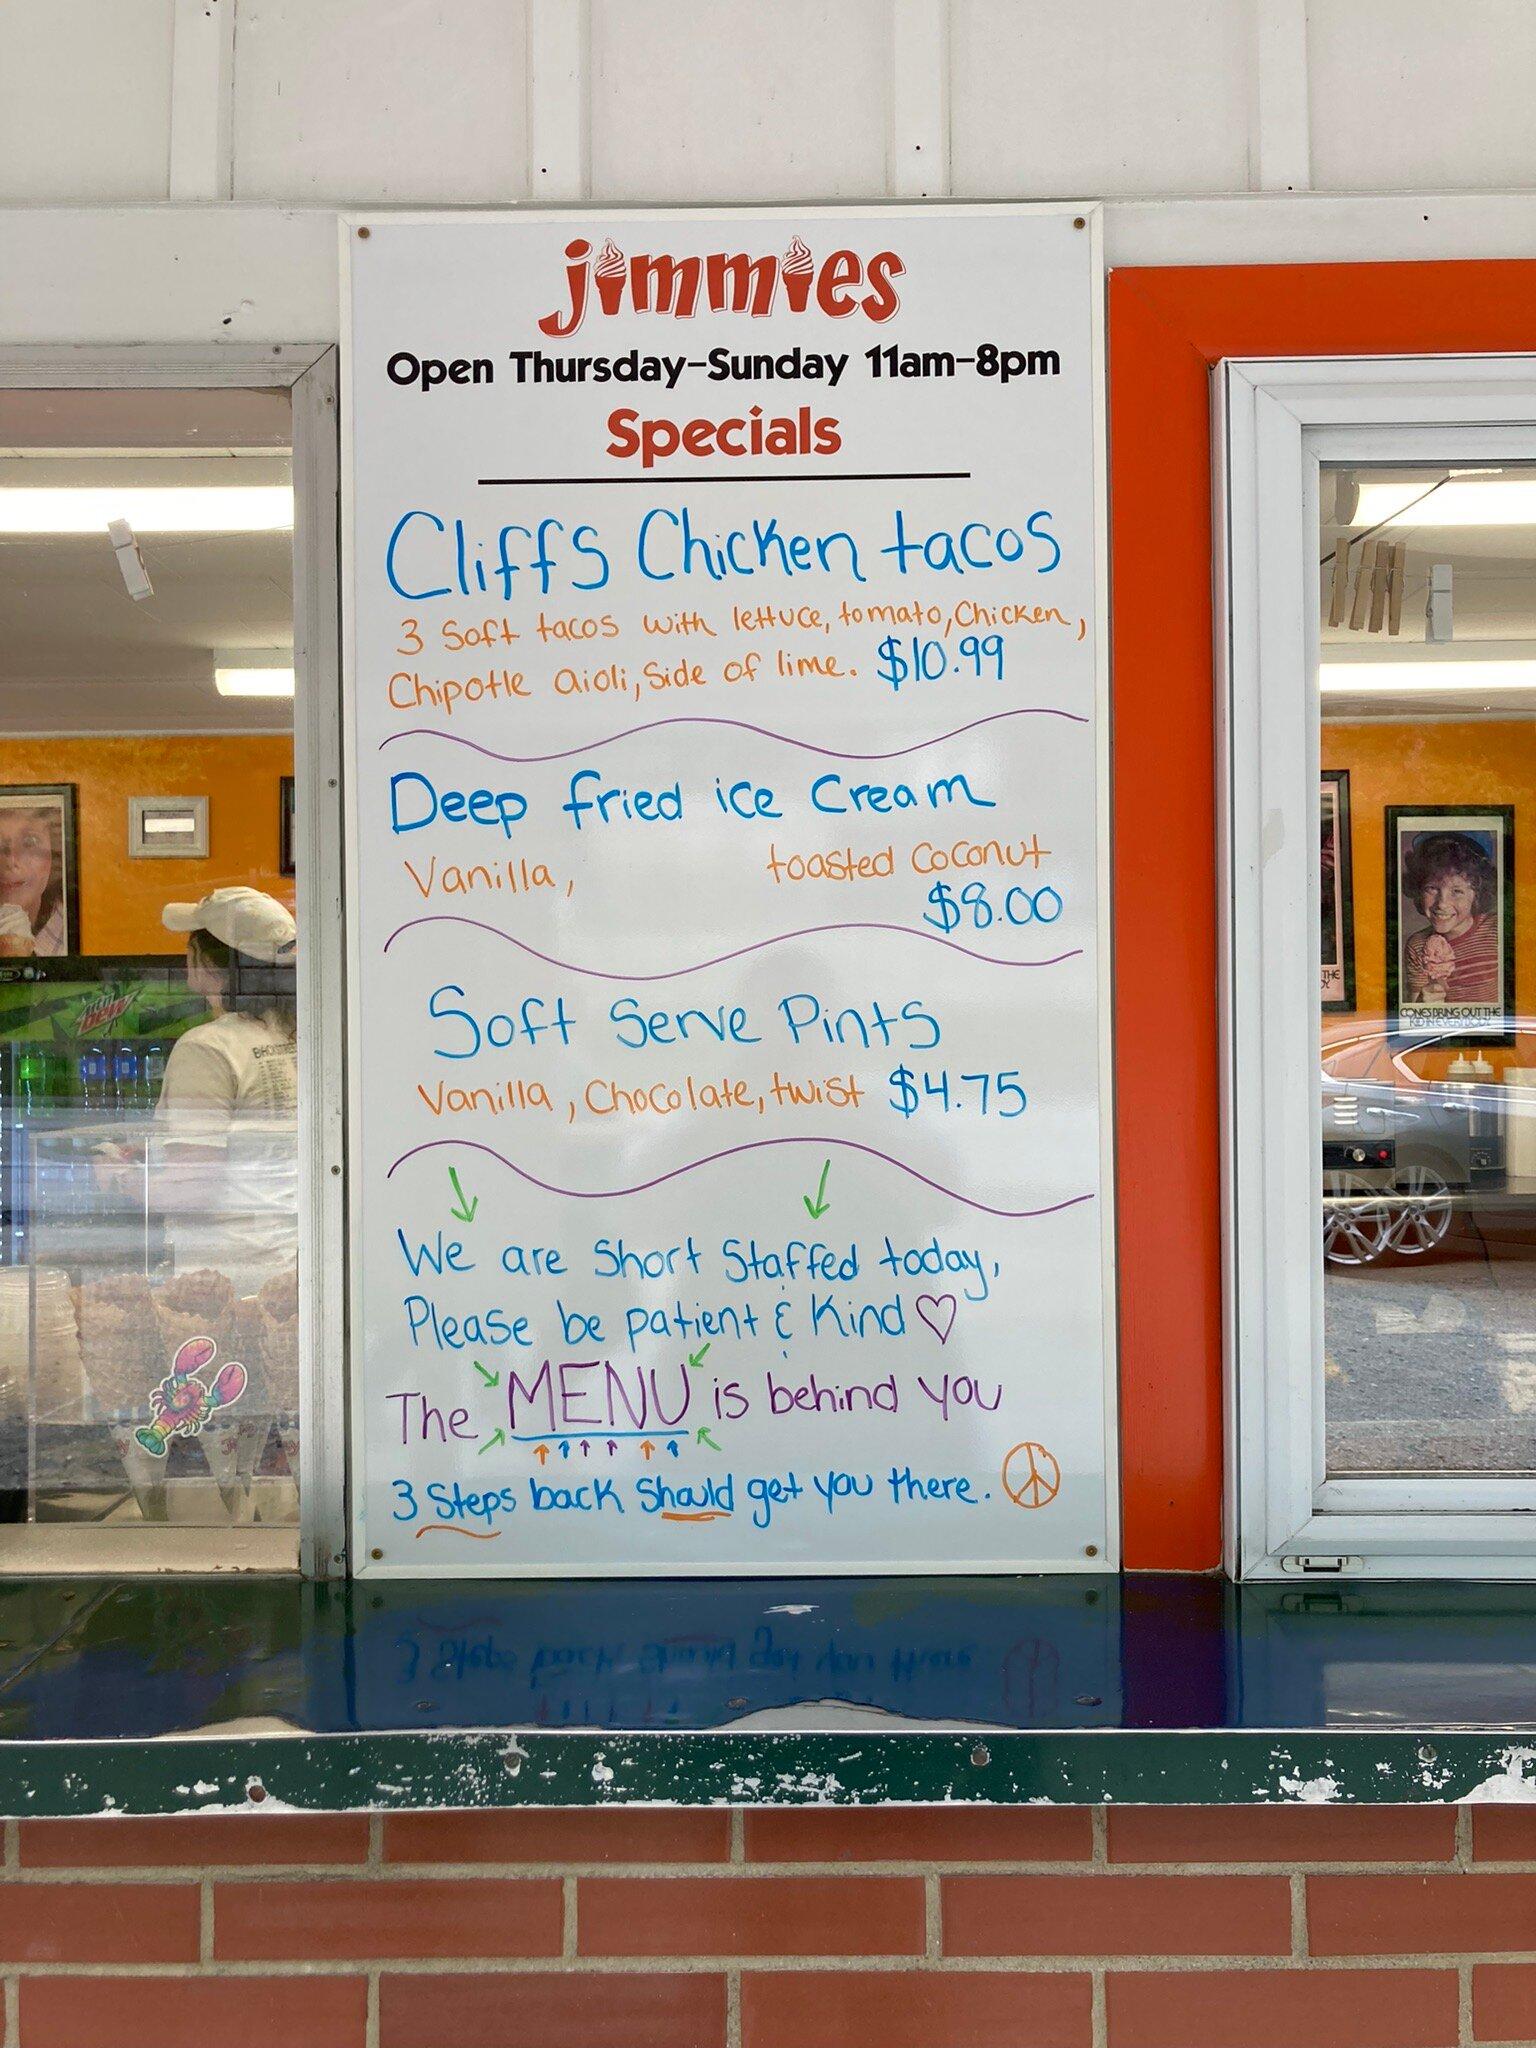 jimmies
Open Thursday-Sunday 11am-8pm
Specials
Cliffs Chicken tacos
3 Soft tacos with lettuce, tomato, Chicken,
Chipotle aioli, Side of lime. $10.99
Deep fried ice Cream
Vanilla, toasted Coconut
$8.00
Soft Serve Pints
Vanilla, Chocolate, twist $4.75
We are Short Staffed today,
Please be patient & Kind
The MENU is behind you
3 Steps back Should get you there.
Mtn Dew
CONES BRING OUT THE
KID IN EVERYBODY